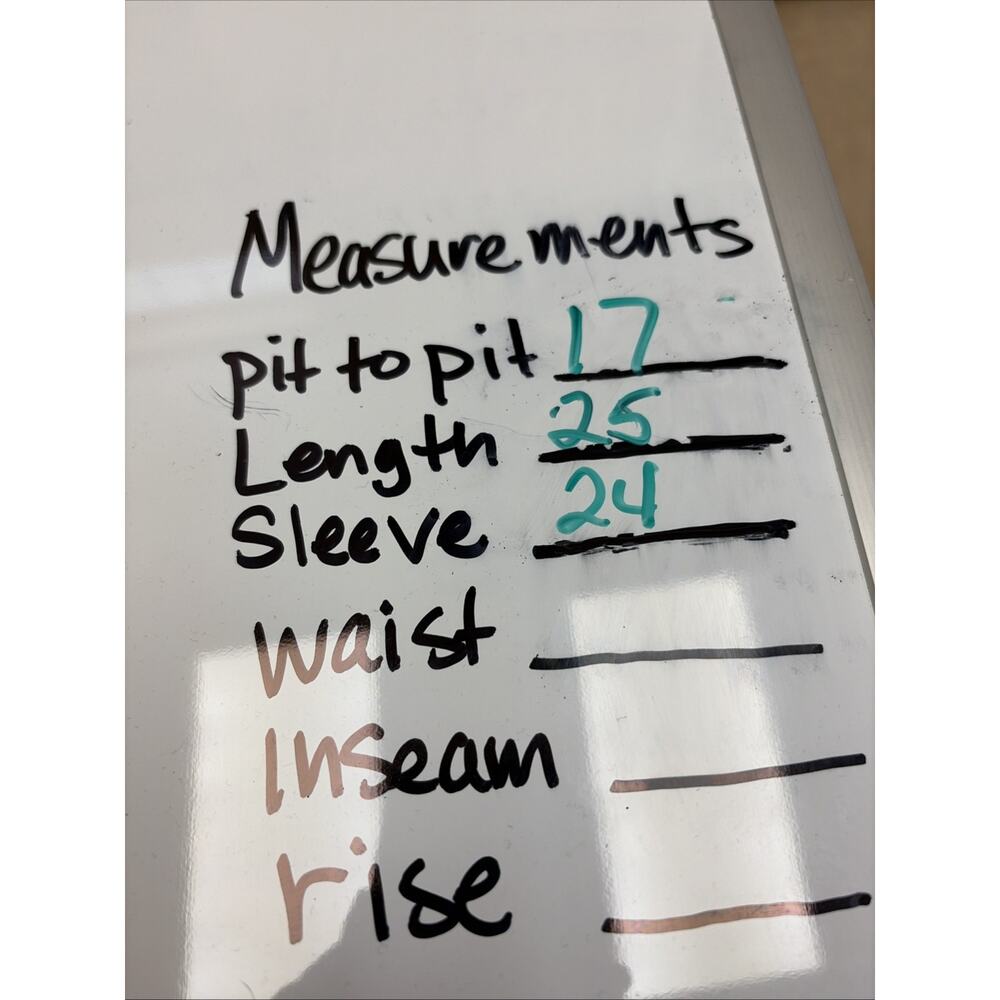 Measurements
pit to pit 17
Length 25
Sleeve 24
waist
Inseam
rise